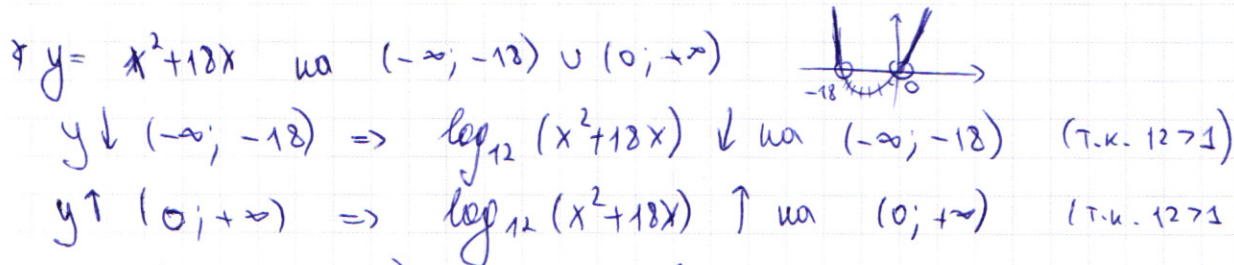 * y = x²+18x на (-∞; -18) ∪ (0; +∞) -18 0
y↓ (-∞; -18) => log₁₂ (x²+18x) ↓ на (-∞; -18) (т.к. 12>1)
y↑ (0; +∞) => log₁₂ (x²+18x) ↑ на (0; +∞) (т.к. 12>1